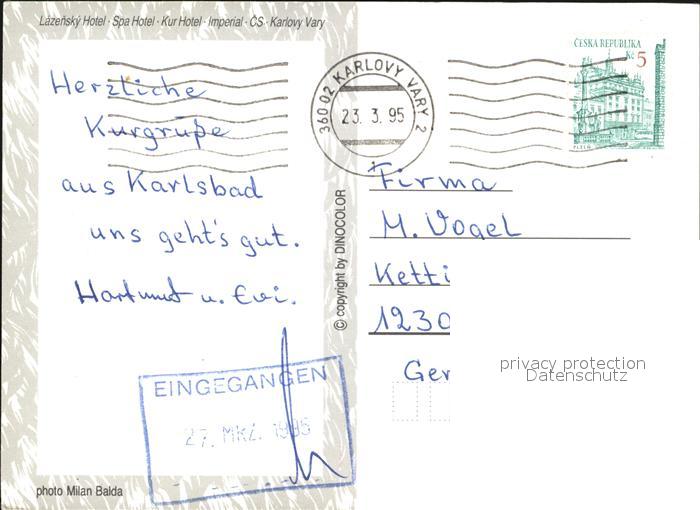 Lázeňský Hotel · Spa Hotel · Kur Hotel · Imperial · ČS · Karlovy Vary
Herzliche
Kurgrüße
aus Karlsbad
uns geht's gut.
Hartmut u. Evi.
EINGEGANGEN
27. MRZ. 1995
photo Milan Balda
© copyright by DINOCOLOR
360 02 KARLOVY VARY 2
23. 3. 95
ČESKÁ REPUBLIKA
Kč 5
PLZEŇ
Firma
M. Vogel
Ketti
1230
Ger
privacy protection
Datenschutz